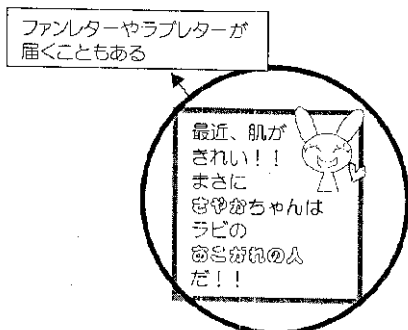 ファンレターやラブレターが
届くこともある
最近、肌が
きれい！！
まさに
さやかちゃんは
ラビの
あこがれの人
だ！！